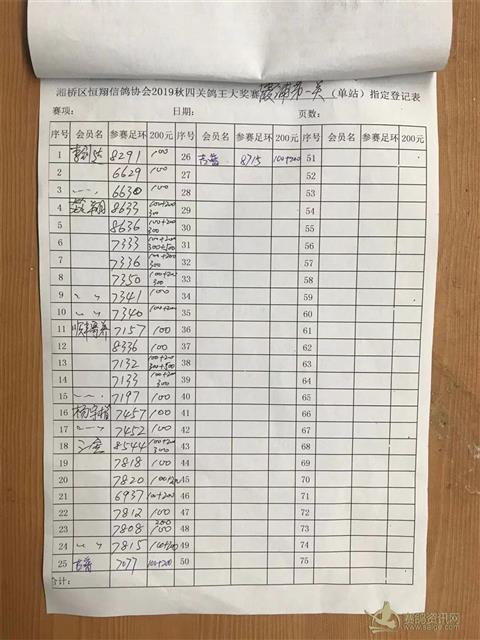 湘桥区恒翔信鸽协会2019秋四关鸽王大奖赛霞浦第一关（单站）指定登记表
赛项： 日期： 页数：
序号 会员名 参赛足环 200元 序号 会员名 参赛足环 200元 序号 会员名 参赛足环 200元
1 8291 100 26 吉鸾 8715 100+200 51
2 6629 100 27 52
3 〃 6630 100 28 53
4 8633 100+200 300 29 54
5 8636 100+200 300 30 55
6 7333 100+200 300+500 31 56
7 7336 100+200 300 32 57
8 7350 100+200 300 33 58
9 〃 〃 7341 100 34 59
10 〃 〃 7340 100+200 35 60
11 7157 100 36 61
12 8336 100 37 62
13 7132 100+200 300+500 38 63
14 7133 100+200 300 39 64
15 7197 100 40 65
16 7457 100 41 66
17 7452 100 42 67
18 8544 100+200 300 43 68
19 7818 100 44 69
20 7820 100+200 45 70
21 6937 100+200 46 71
22 7812 100 47 72
23 7808 200 100 48 73
24 〃 〃 7815 100+200 49 74
25 7077 100+200 50 75
合计：
赛鸽资讯网
www.saige.com